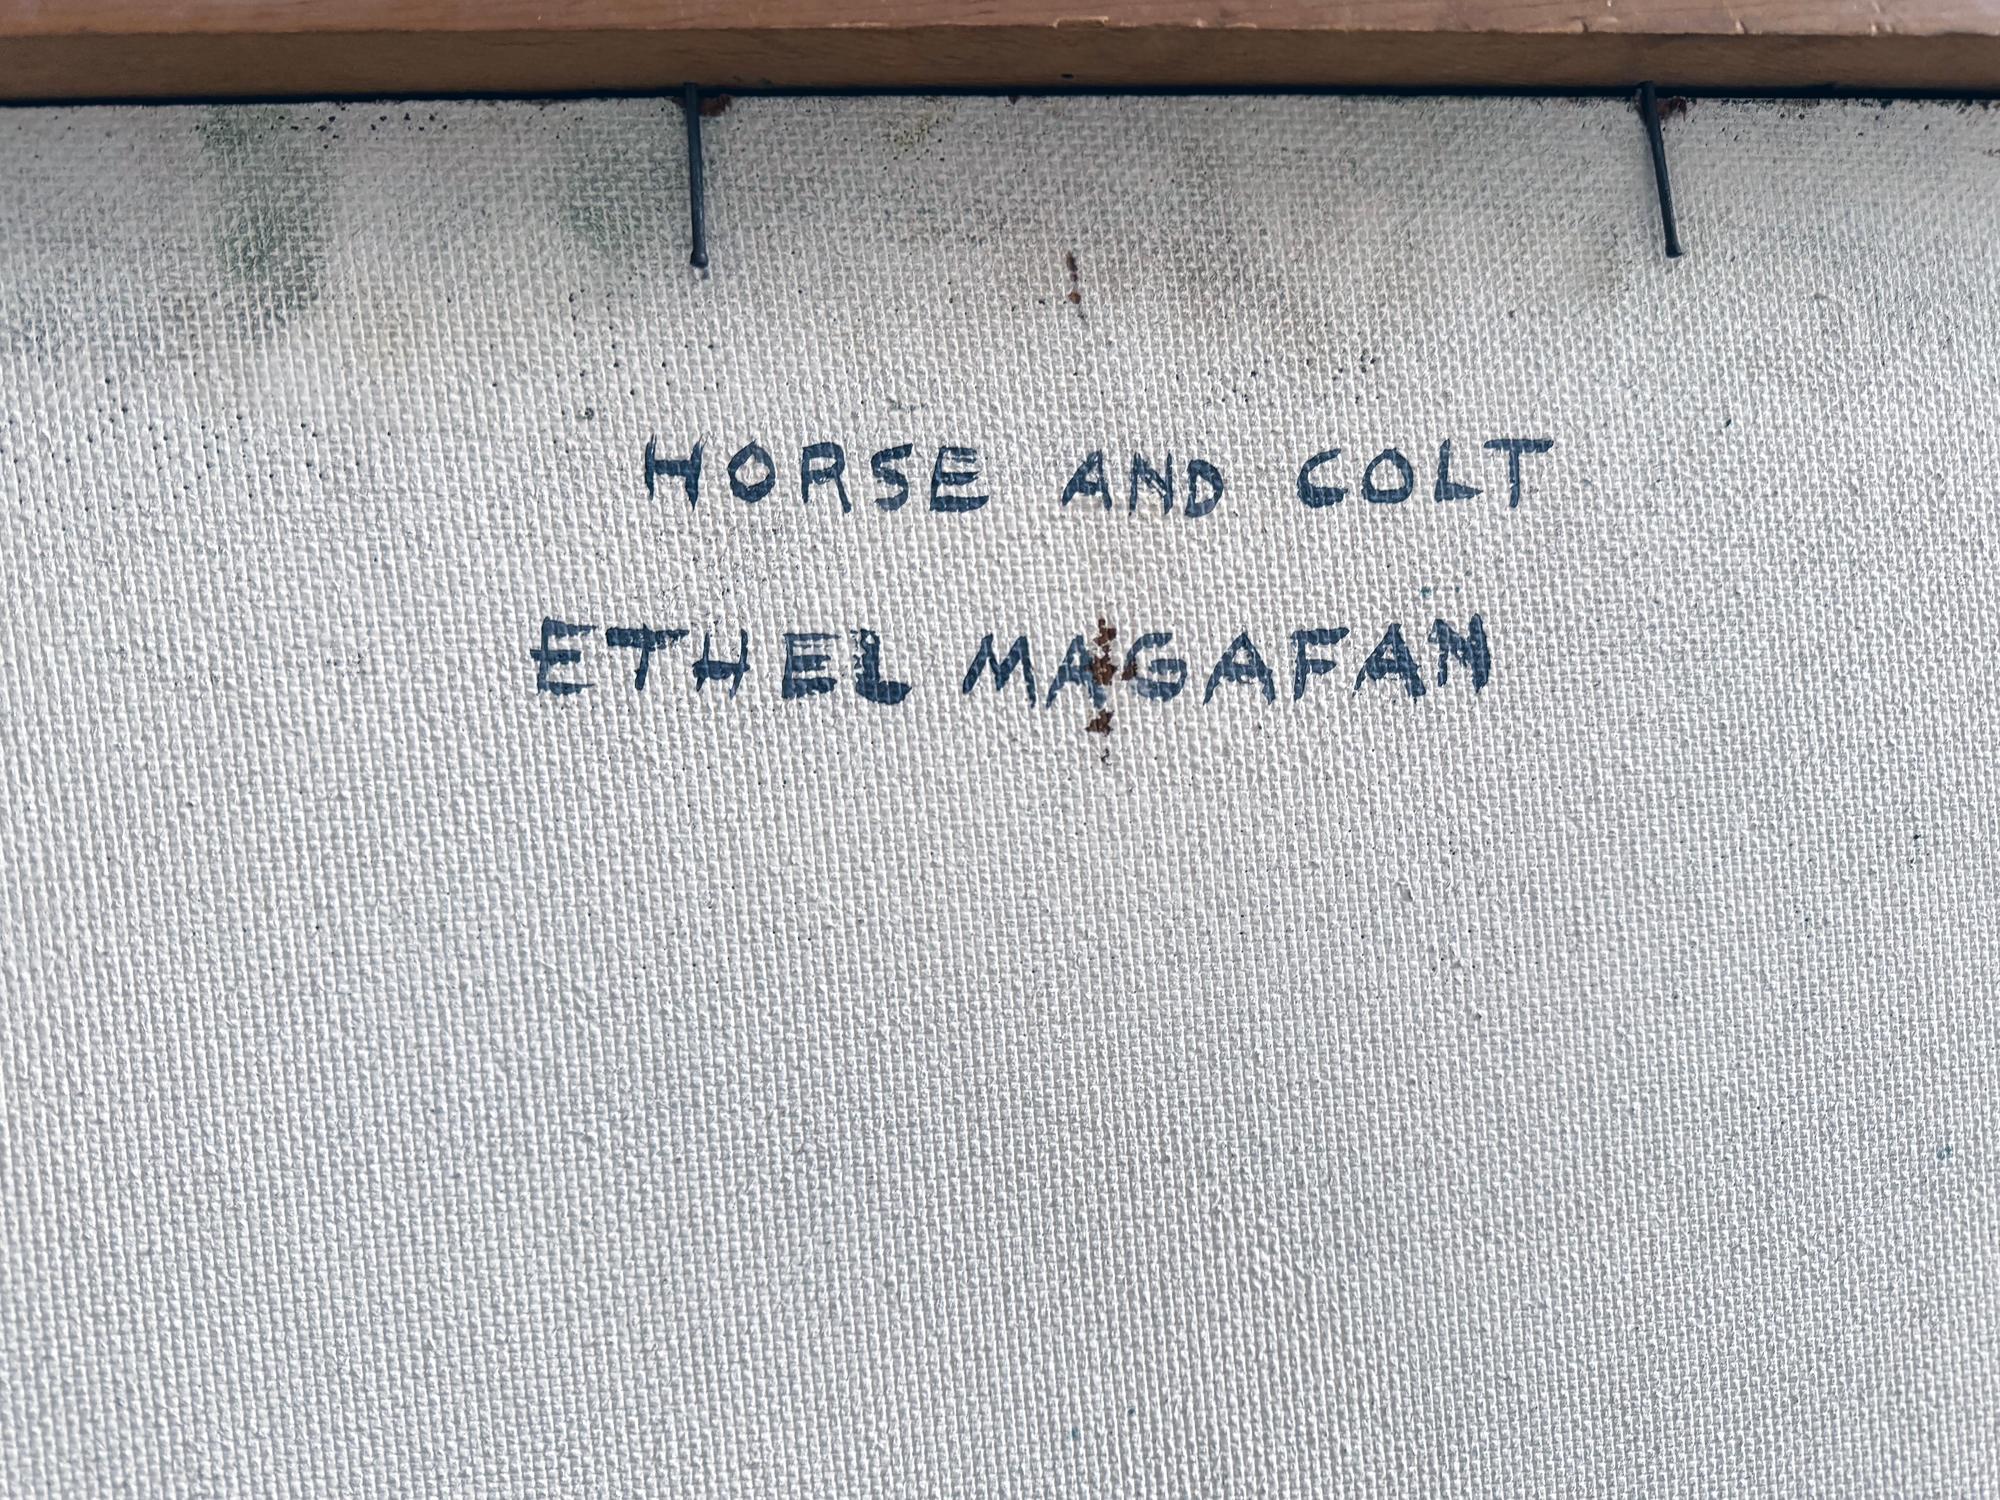 HORSE AND COLT
ETHEL MAGAFAN